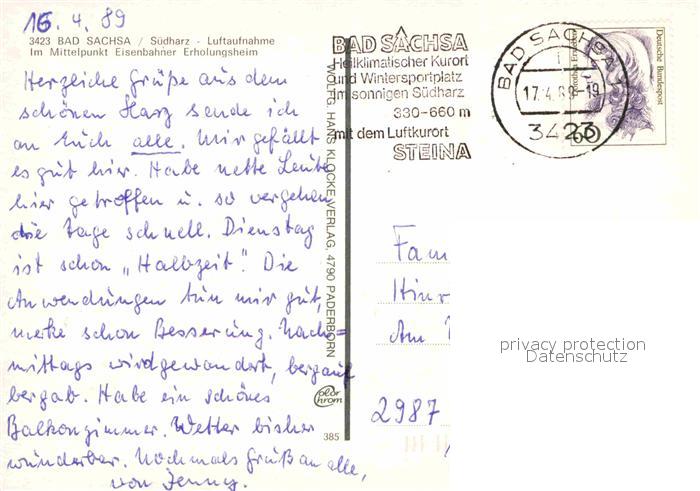 16. 4. 89
3423 BAD SACHSA / Südharz - Luftaufnahme
Im Mittelpunkt Eisenbahner Erholungsheim
Herzliche Grüße aus dem
schönen Harz sende ich
an Euch alle. Mir gefällt
es gut hier. Habe nette Leute
hier getroffen u. so vergehen
die Tage schnell. Dienstag
ist schon „Halbzeit". Die
Anwendungen tun mir gut,
merke schon Besserung. Nach=
mittags wird gewandert, bergauf
bergab. Habe ein schönes
Balkonzimmer. Wetter bisher
wunderbar. Nochmals Gruß an alle,
von Jenny.
WOLFG. HANS KLOCKE VERLAG, 4790 PADERBORN
color
chrom
385
BAD SACHSA
Heilklimatischer Kurort
und Wintersportplatz
im sonnigen Südharz
330-660 m
mit dem Luftkurort
STEINA
BAD SACHSA 1
17.4.89-19
3423
Deutsche Bundespost
60
Fam
Hinr
Am
2987
privacy protection
Datenschutz